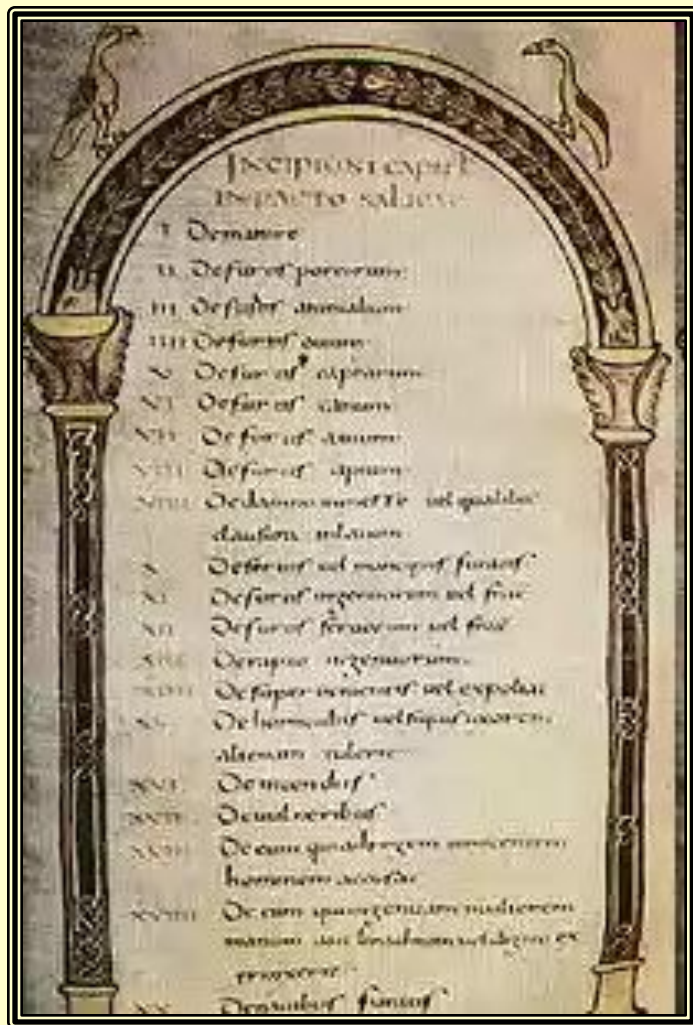 INCIPIUNT CAPITL
IN PACTO SALICAE
I Demannire
II De furtis porcorum
III De furtis animalium
IIII De furtis ouium
V De furtis caprarum
VI De furtis canum
VII De furtis auium
VIII De furtis apium
VIIII De damno in messe uel qualibet
clausura inlatum
X De seruis uel mancipiis furatis
XI De furtis ingenuorum uel frac
XII De furtis seruorum uel frac
XIII De rapto ingenuorum
XIIII De superuenientis uel expoliat
XV De homicidiis uel si quis uxorem
alienam tulerit
XVI De incendiis
XVII De uulneribus
XVIII De eum qui innocentem
hominem accusat
XVIIII De eum qui ingenuam mulierem
manum uel
XX De nauibus furatis